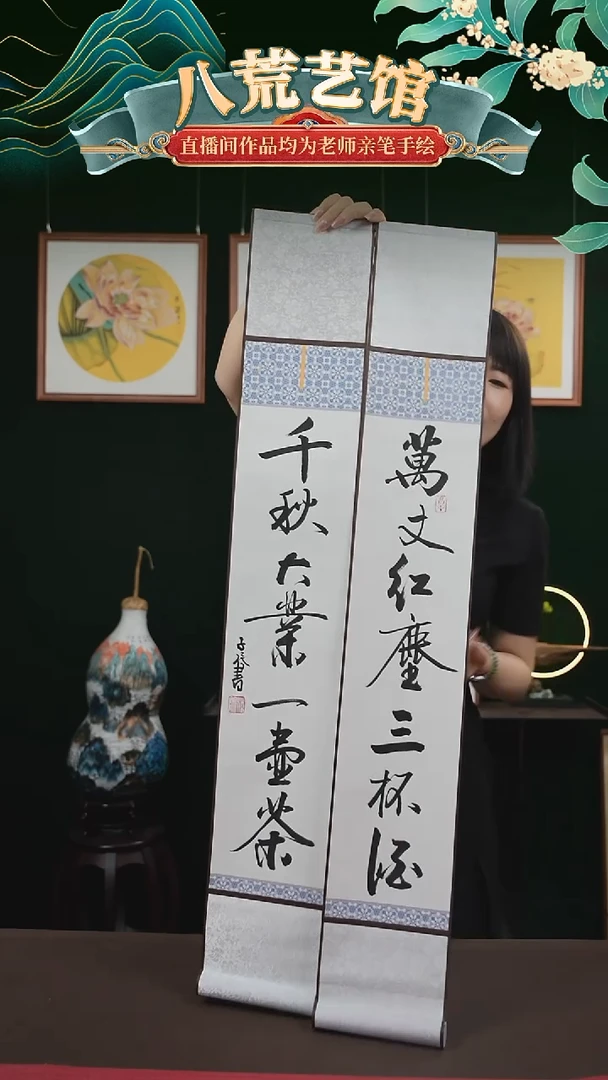 八荒艺馆
直播间作品均为老师亲笔手绘
萬丈红塵三杯酒
千秋大業一壺茶